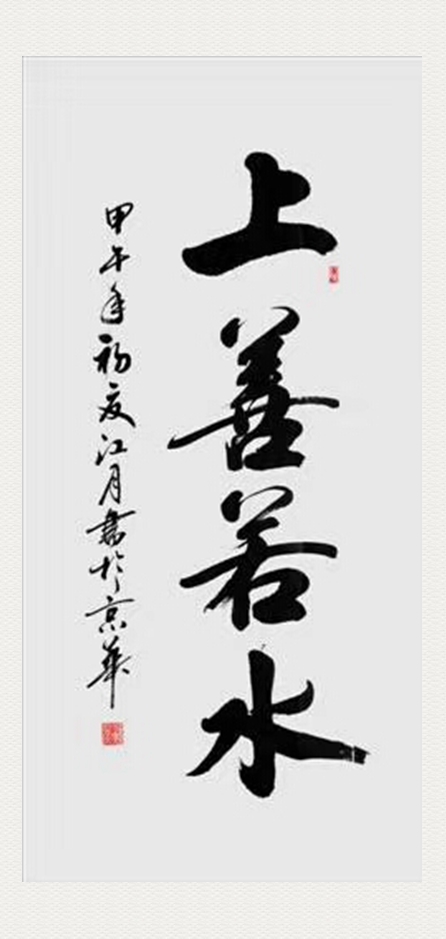 上善若水
甲午年初夏江月書於京華